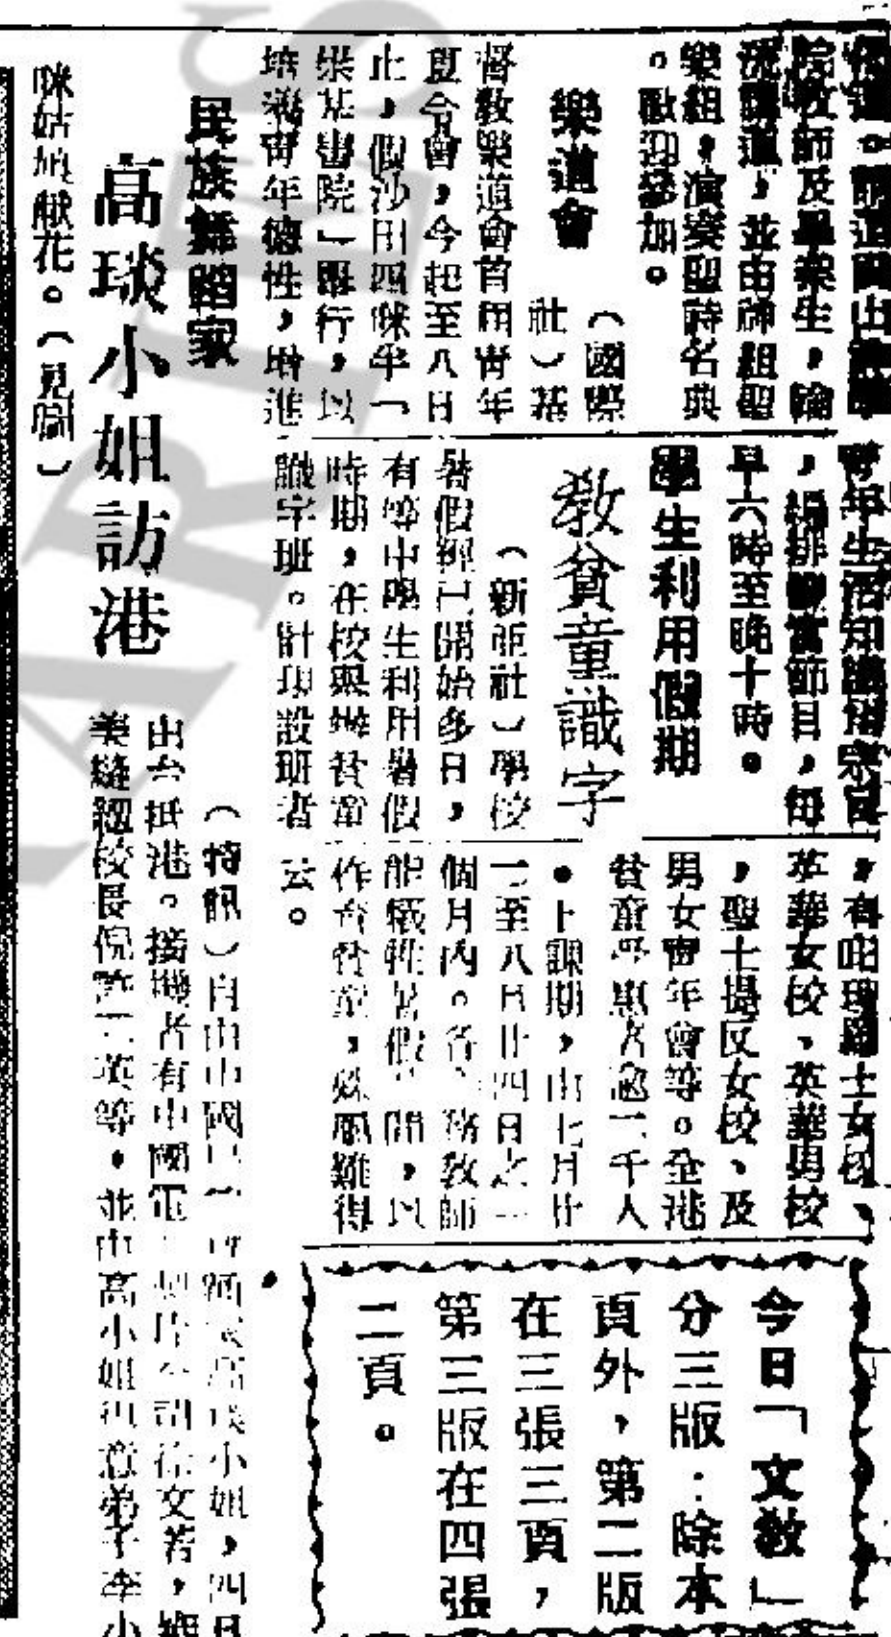 院教師及畢業生，輪
流講道，並由師組聖
樂組，演奏聖詩名典
。歡迎參加。
樂道會
（國際
社）基
督教樂道會首屆青年
夏令會，今起至八日
止，假沙田四咪半「
崇基書院」舉行，以
培養青年德性，增進
青年生活知識
，編排豐富節目，每
早六時至晚十時。
學生利用假期
教貧童識字
（新亞社）學校
暑假經已開始多日，
有等中學生利用暑假
時期，在校舉辦貧童
識字班。計現設班者
，有
英華女校、英華男校
，聖士提反女校、及
男女青年會等。全港
貧童受惠者逾二千人
。上課期，由七月廿
一至八月廿四日之一
個月內。各義務教師
能犧牲暑假時間，以
作育貧童，殊屬難得
云。
今日「文教」
分三版：除本
頁外，第二版
在三張三頁，
第三版在四張
二頁。
民族舞蹈家
高琰小姐訪港
（特訊）自由中國 小姐，四日
由台抵港。接機者有中國電 徐文若，
美縫紉校長倪許二英等，並由高小姐 弟子李小
咪姑娘獻花。（見圖）